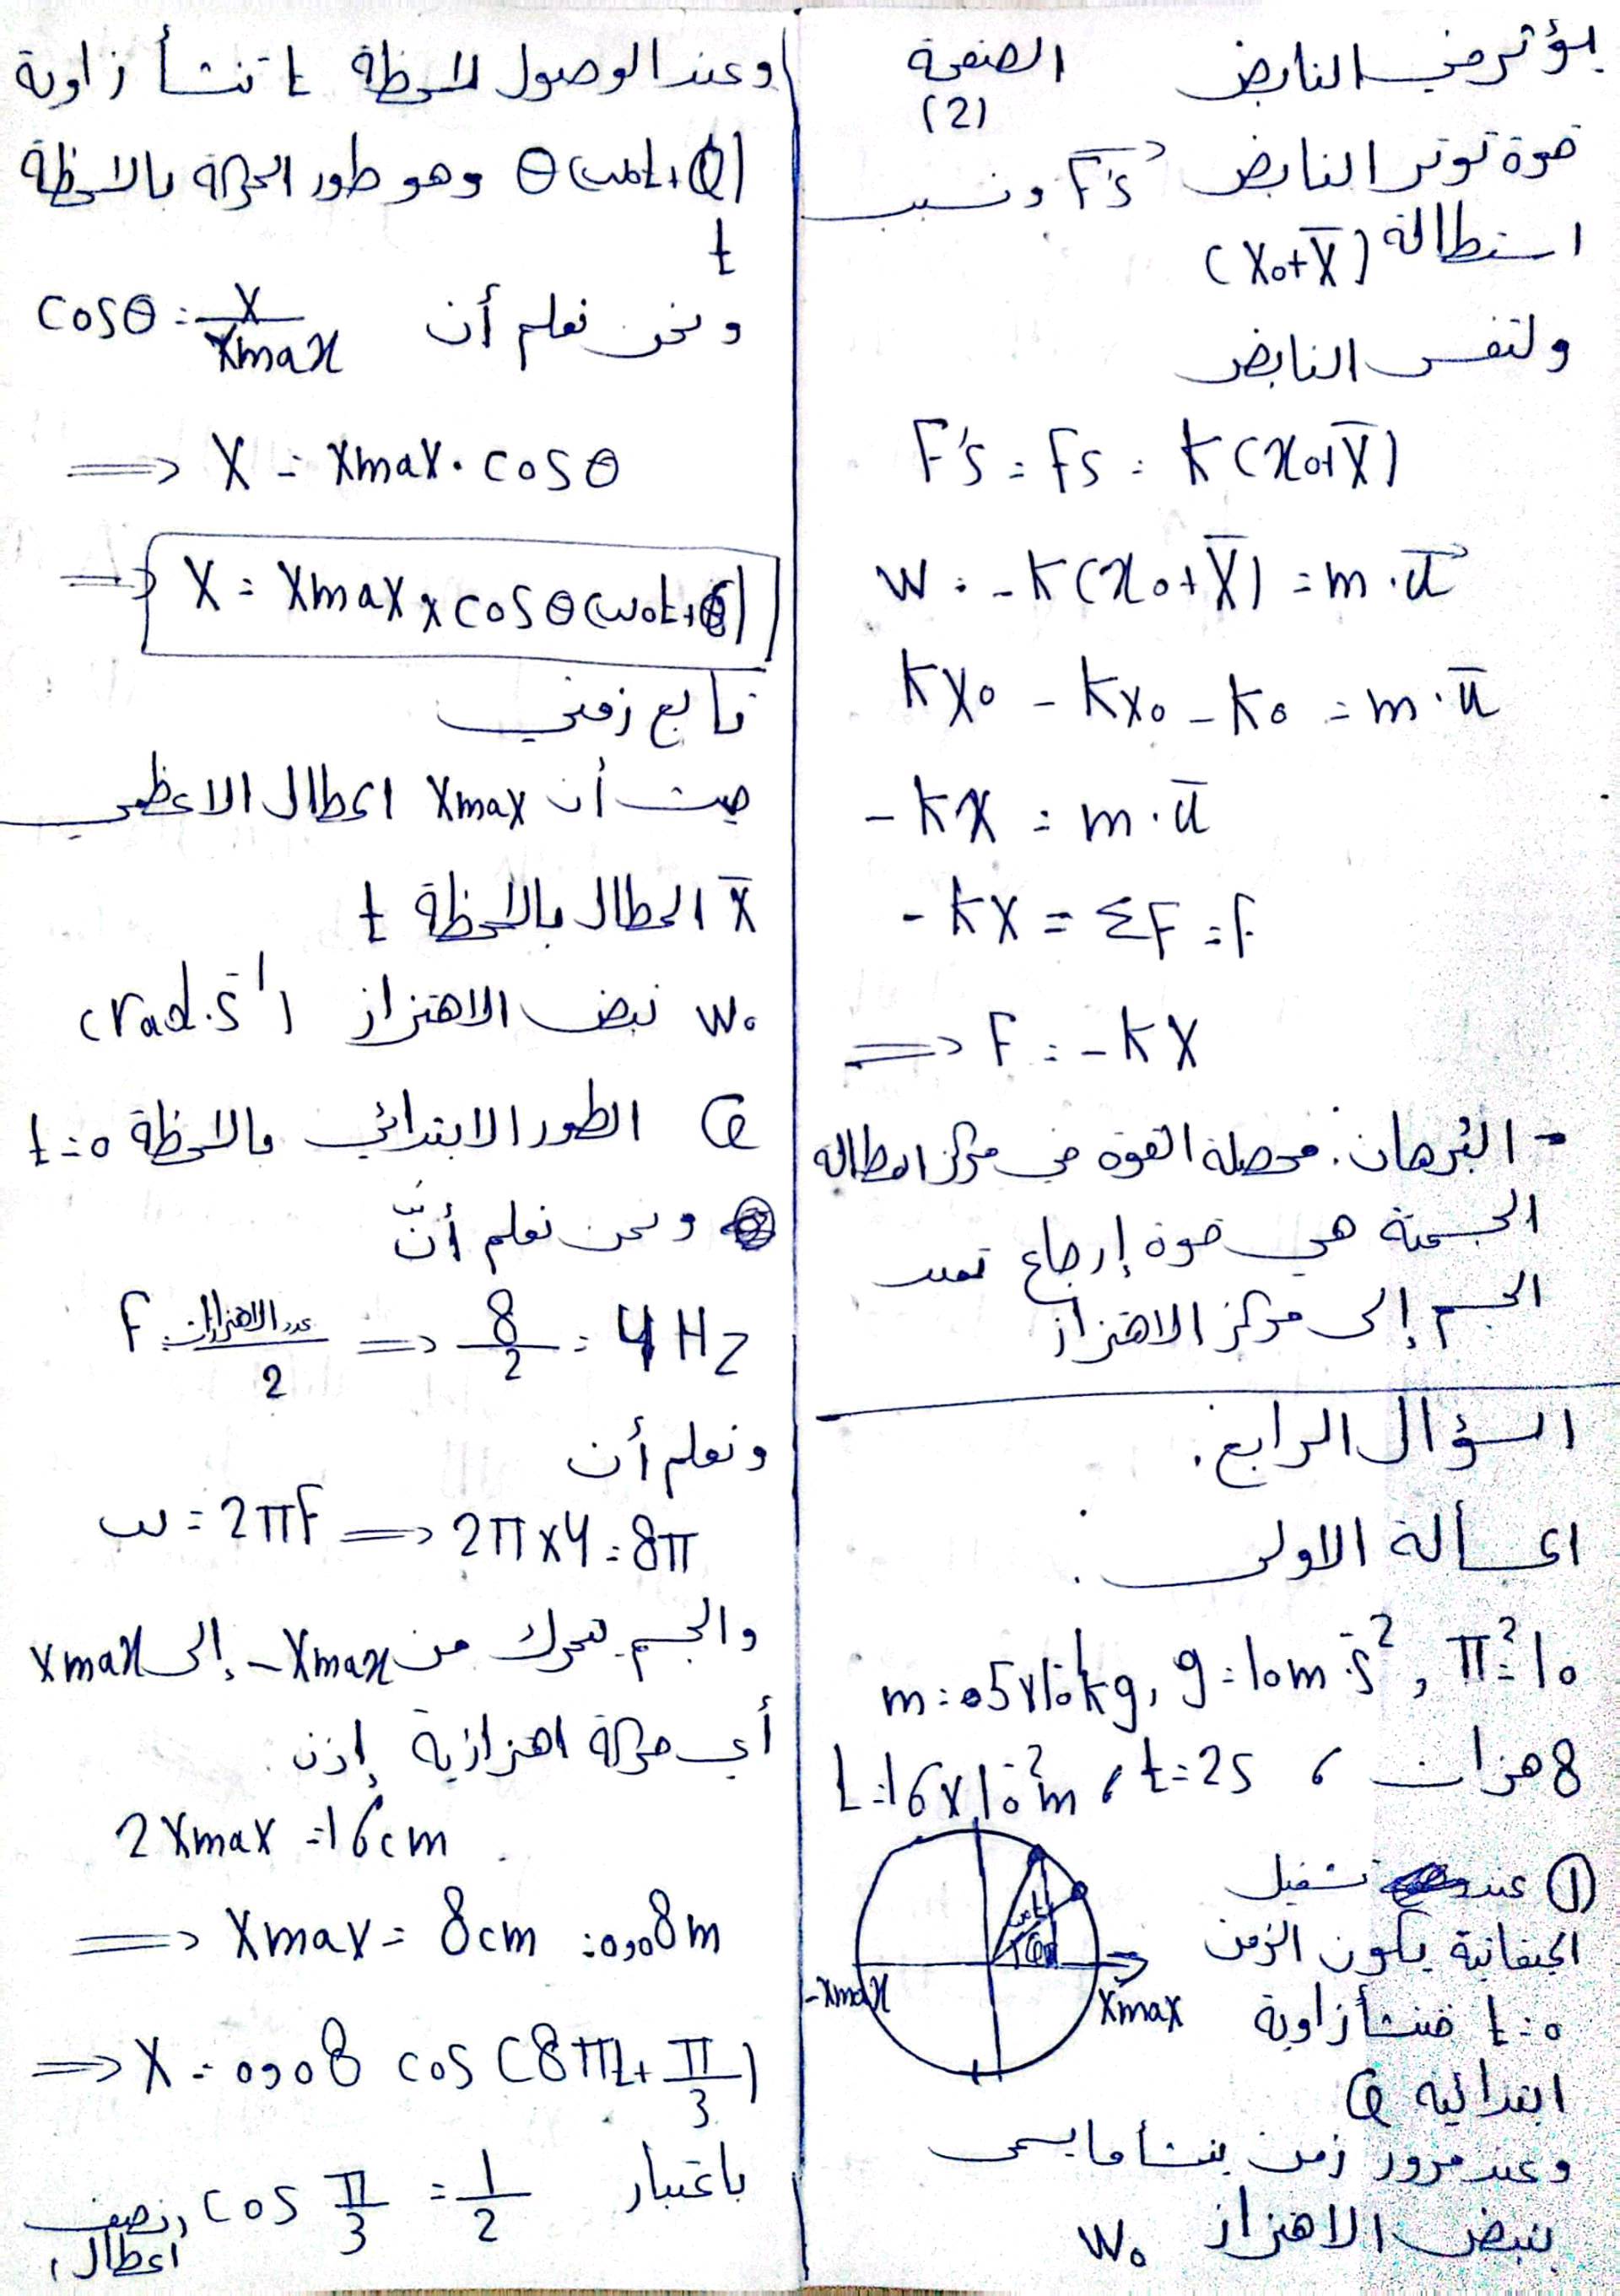 يؤثر في النابض
الصفحة
(2)
قوة توتر النابض F's وتسبب
استطالة (X0+X̄)
ولنفس النابض
F's = Fs = K(x0+X̄)
W - K(x0+X̄) = m.a
Kx0 - Kx0 - K0 = m.ā
-Kx = m.ā
-Kx = ΣF = F
=> F = -Kx
- البُرهان: محصلة القوة في مركز
الجسم هي قوة إرجاع تعيد
الجسم إلى مركز الاهتزاز
السؤال الرابع:
المسألة الاولى:
g=10m.s⁻², π²=10
8 هزات ، t=2s ، L=16x10⁻²m
① عند تشغيل
يكون الزمن
t=0 فتنشأ زاوية
ابتدائية φ
وعند مرور زمن ينشأ ما يسمى
بنبض الاهتزاز W0
-Xmax
Xmax
وعند الوصول للحظة t تنشأ زاوية
θ(ω0t+φ) وهو طور الحركة باللحظة
t
ونحن نعلم أن cosθ = X/Xmax
=> X = Xmax . cosθ
=> X = Xmax x cosθ(ω0t+φ)
تابع زمني
حيث أن Xmax المطال الاعظمي
X̄ المطال باللحظة t
W0 نبض الاهتزاز (rad.s⁻¹)
φ الطور الابتدائي باللحظة t=0
ونحن نعلم أنّ
F = عدد الاهتزازات/2 => 8/2 = 4Hz
ونعلم أن
ω = 2πF => 2π x 4 = 8π
والجسم تحرك من -Xmax إلى Xmax
أي حركة اهتزازية إذن
2Xmax = 16cm
=> Xmax = 8cm = 0,08m
=> X = 0,08 cos(8πt + π/3)
باعتبار cos π/3 = 1/2 (نصف
المطال)